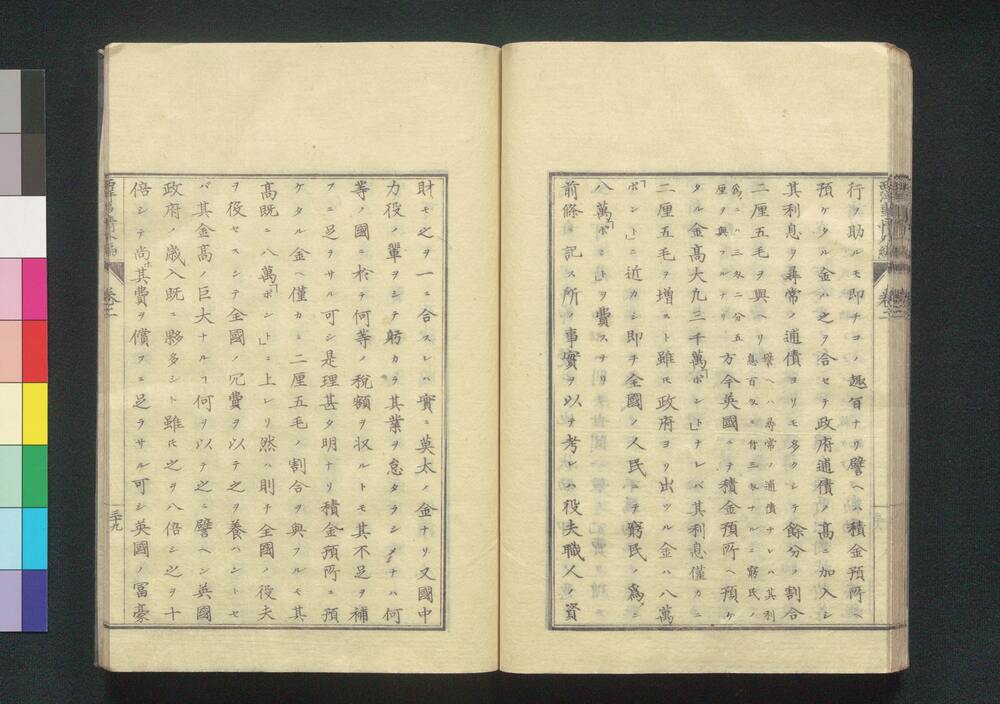 行ヲ助ルモ即チコノ趣旨ナリ譬ヘハ積金預所ヘ
預ケタル金ハ之ヲ合セテ政府逋債ノ髙ニ加入シ
其利息ヲ尋常ノ逋債ヨリモ多クシテ餘分ノ割合
二厘五毛ヲ與ヘリ
譬ヘハ尋常ノ逋債ナレハ其利
息百久ニ付三久ナルニ窮民ノ
為ニハ三久二分五
厘ヲ與フルナリ
方今英國ニテ積金預所ヘ預ケ
タル金髙大九三千萬「ポント」ナレバ其利息僅カニ
二厘五毛ヲ増スト雖𪜈政府ヨリ出ツル金ハ八萬
「ポント」ニ近カシ即チ全國ノ人民ニテ窮民ノ爲ニ
八萬「ポント」ヲ費スナリ
前條ニ記ス所ノ事實ヲ以テ考レハ役夫職人ノ資
財モ之ヲ一ニ合スレハ實ニ莫大ノ金ナリ又國中
力役ノ輩ヲシテ躬カラ其業ヲ怠タラシメナハ何
等ノ國ニ於テ何等ノ税額ヲ収ルトモ其不足ヲ補
フニ足ラサル可シ是理甚タ明ナリ積金預所ニ預
ケタル金ヘ僅カニ二厘五毛ノ割合ヲ與フルモ其
髙既ニ八萬「ポント」ニ上レリ然ハ則チ全國ノ役夫
ヲ役セスシテ全國ノ冗費ヲ以テ之ヲ養ハントセ
バ其金髙ノ巨大ナルヿ何ヲ以テ之ニ譬ヘン英國
政府ノ歳入既ニ夥多シト雖𪜈之ヲ八倍シ之ヲ十
倍シテ尚ホ其費ヲ償フニ足ラサル可シ英國ノ冨豪
卷二
三十九